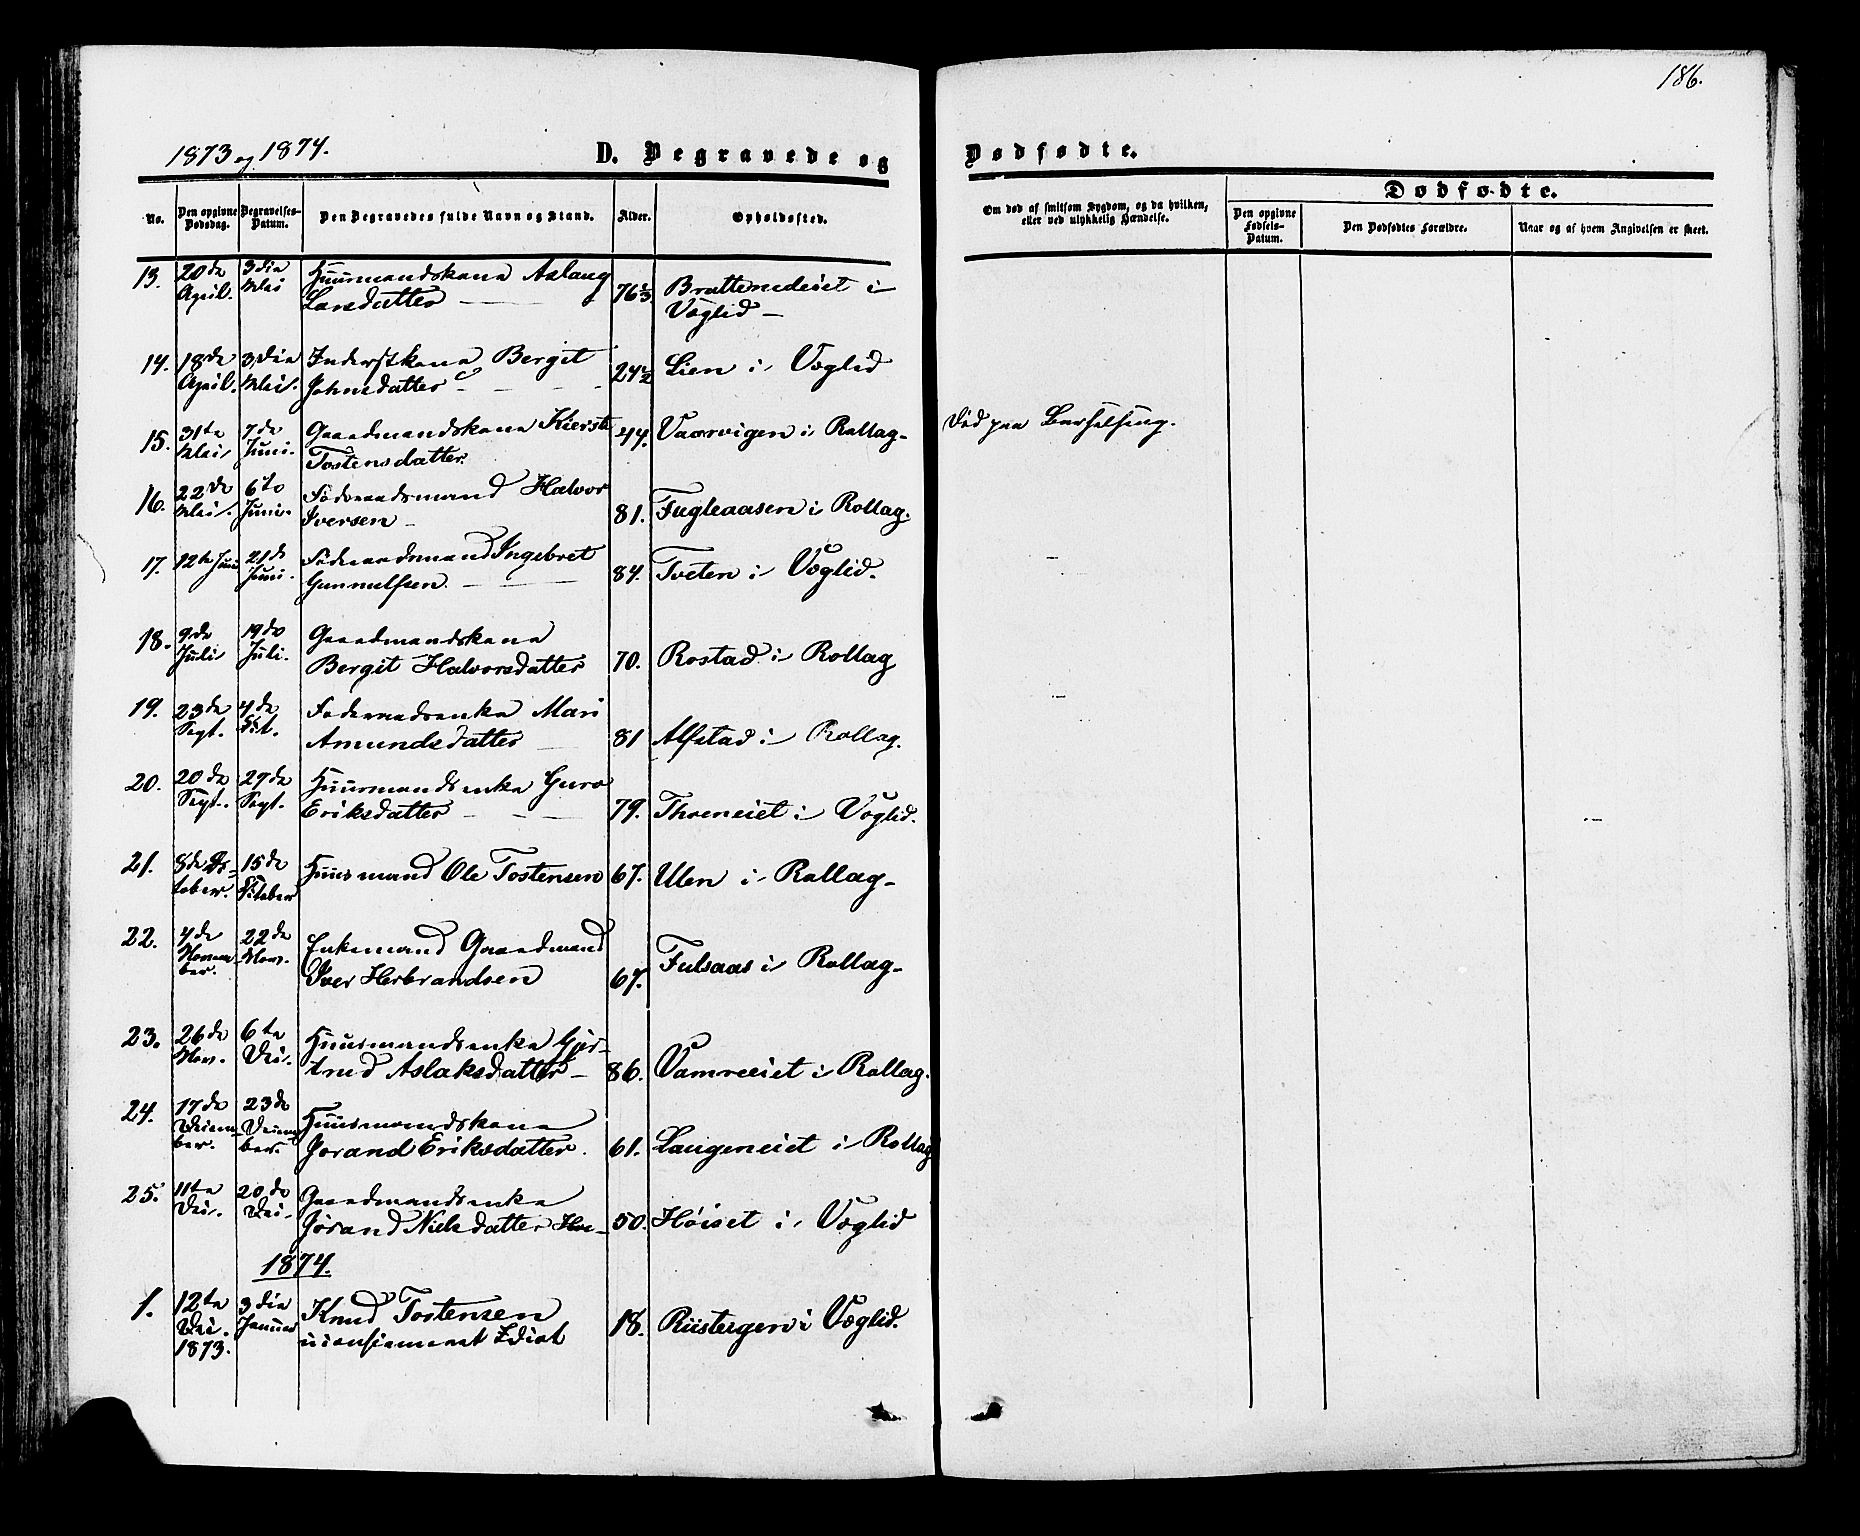 186.
1873 og 1874.
D. Begravede og
Dødfødte.
No.
Den opgivne Dødsdag.
Begravelses-Datum.
Den Begravedes fulde Navn og Stand.
Alder.
Opholdssted.
Om død af smitsom Sygdom, og da hvilken, eller ved ulykkelig Hændelse.
Dødfødte.
Den opgivne Fødsels-Datum.
Den Dødfødtes Forældre.
Naar og af hvem Angivelsen er skeet.
13. 20de April. 3die Mai Huusmandskone Aslaug Larsdatter 76 1/3 Bratteneiet i Væglid
14. 18de April. 3die Mai. Inderstkone Bergit Johnsdatter 24 1/2 Lien i Væglid
15. 31te Mai 7de Juni. Gaardmandskone Kiersti Tostensdatter 44. Vaarvigen i Rollag Død paa Barselseng.
16. 22de Mai. 6te Juni. Føderaadsmand Halvor Iversen 81. Fugleaasen i Rollag.
17. 12te Juni 21de Juni. Føderaadsmand Ingebret Gunnulfsen. 84. Tveten i Væglid.
18. 9de Juli 19de Juli. Gaardmandskone Bergit Halvorsdatter 70. Rostad i Rollag
19. 23de Sept. 4de Oct. Føderaadsenke Mari Amundsdatter 81 Alfstad i Rollag.
20. 20de Sept. 27de Sept. Huusmandsenke Guro Eriksdatter 79. Throneiet i Væglid.
21. 8de October. 15de October Huusmand Ole Tostensen 67. Ulen i Rollag
22. 4de November. 22de Nov. Enkemand Gaardmand Iver Herbrandsen 67. Fulsaas i Rollag
23. 26de Nov. 6te Dec. Huusmandsenke Gjertrud Aslaksdatter 86. Vamreeiet i Rollag.
24. 17de December. 23de December. Huusmandskone Jorand Eriksdatter. 61. Laugeneiet i Rollag
25. 11te Dec. 20de Dec. Gaardmandsenke Jørand Nielsdatter 50. Høiset i Væglid
1874.
1. 12te Dec. 1873. 3die Januar Knud Tostensen uconfirmeret Idiot 18. Riisteigen i Væglid.